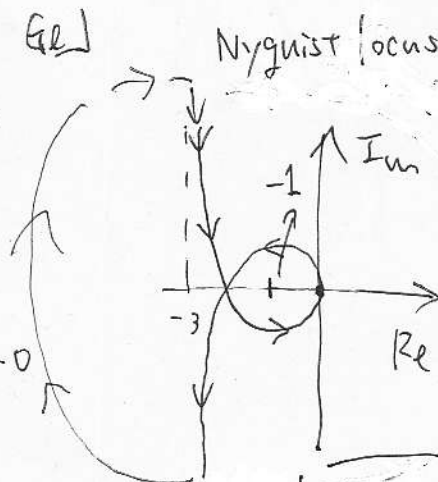 Nyquist locus
Im
-1
-3
Re